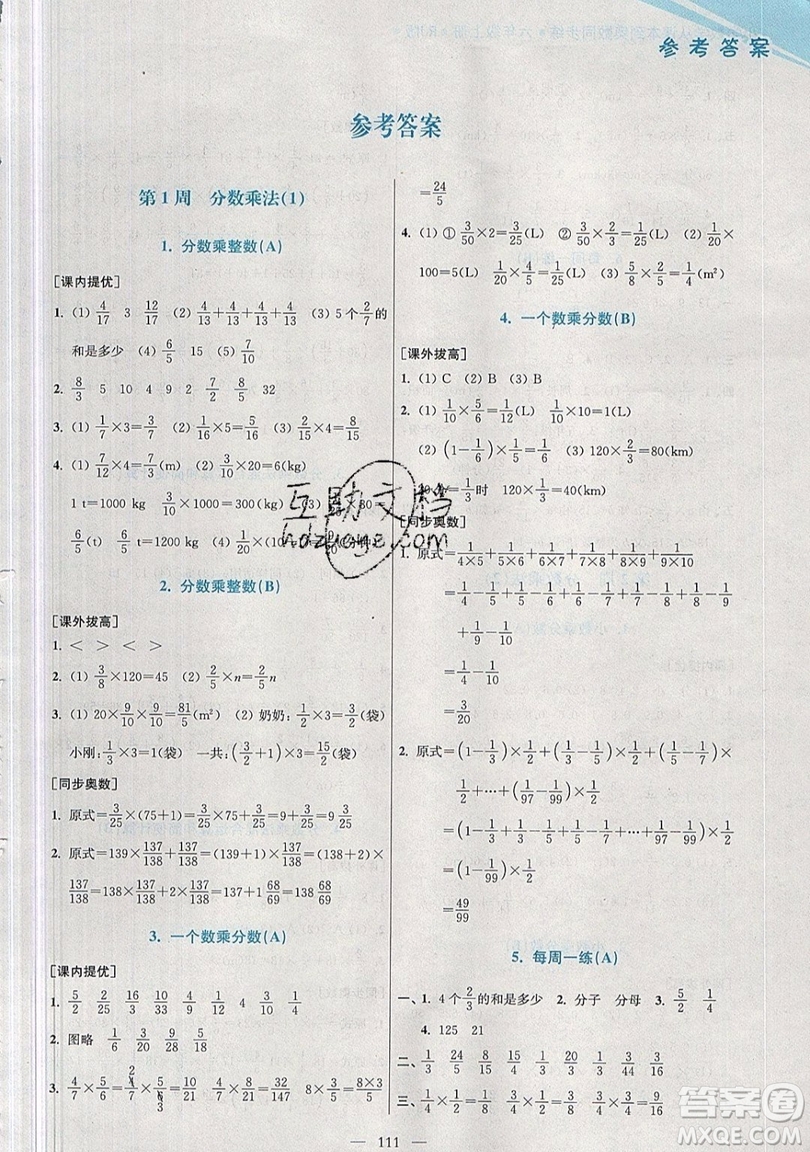 参考答案
参考答案
第1周 分数乘法(1)
1. 分数乘整数(A)
[课内提优]
1. (1) 4/17 3 12/17 (2) 4/13+4/13+4/13+4/13 (3) 5个2/7的
和是多少 (4) 6/5 15 (5) 7/10
2. 8/3 5 10 4 9 2 7/2 8/5 32
3. (1) 1/7×3=3/7 (2) 1/16×5=5/16 (3) 2/15×4=8/15
4. (1) 7/12×4=7/3(m) (2) 3/10×20=6(kg)
1 t=1000 kg 3/10×1000=300(kg) (3) 80=
6/5(t) 6/5 t 1/20×(10
2. 分数乘整数(B)
[课外拔高]
1. < > < >
2. (1) 3/8×120=45 (2) 2/5×n=2/5n
3. (1) 20×9/10×9/10=81/5(m²) (2) 奶奶:1/2×3=3/2(袋)
小刚:1/3×3=1(袋) 一共:(3/2+1)×3=15/2(袋)
[同步奥数]
1. 原式=3/25×(75+1)=3/25×75+3/25=9+3/25=9 3/25
2. 原式=139×137/138=(139+1)×137/138=(138+2)×
137/138=138×137/138+2×137/138=137+1 68/69=138 68/69
3. 一个数乘分数(A)
[课内提优]
1. 5/2 2/25 16/25 10/33 4/9 1/8 3/10 1/4
2. 图略 1/6 3/20 9/28 5/33
3. 4/7×5/6=4/7×5/6=10/21 4/7×8/21=32/147 8×3/5=8×3/5
=24/5
4. (1) ①3/50×2=3/25(L) ②3/50×2/3=1/25(L) (2) 1/20×
100=5(L) 1/20×4/5=1/25(L) (3) 5/8×2/5=1/4(m²)
4. 一个数乘分数(B)
[课外拔高]
1. (1) C (2) B (3) B
2. (1) 1/10×5/6=1/12(L) 1/10×10=1(L)
(2) (1-1/6)×(1-1/6) (3) 120×2/3=80(km)
=1/3时 120×1/3=40(km)
[同步奥数]
1. 原式=1/4×5+1/5×6+1/6×7+1/7×8+1/8×9+1/9×10
=1/4-1/5+1/5-1/6+1/6-1/7+1/7-1/8+1/8-1/9
+1/9-1/10
=1/4-1/10
=3/20
2. 原式=(1-1/3)×1/2+(1/3-1/5)×1/2+(1/5-1/7)×
1/2+…+(1/97-1/99)×1/2
=(1-1/3+1/3-1/5+1/5-1/7+…+1/97-1/99)×1/2
=(1-1/99)×1/2
=49/99
5. 每周一练(A)
一、1. 4个2/3的和是多少 2. 分子 分母 3. 5/2 1/4
4. 125 21
二、1/3 24/5 5/8 8/15 15/4 4/15 1/30 8/3 3/10 3/14
三、1/4×1/2=1/8 1/3×1/3=1/9 1/5×1/3=1/15
111
互助文档
hdzuoye.com
答案圈
MXQE.COM